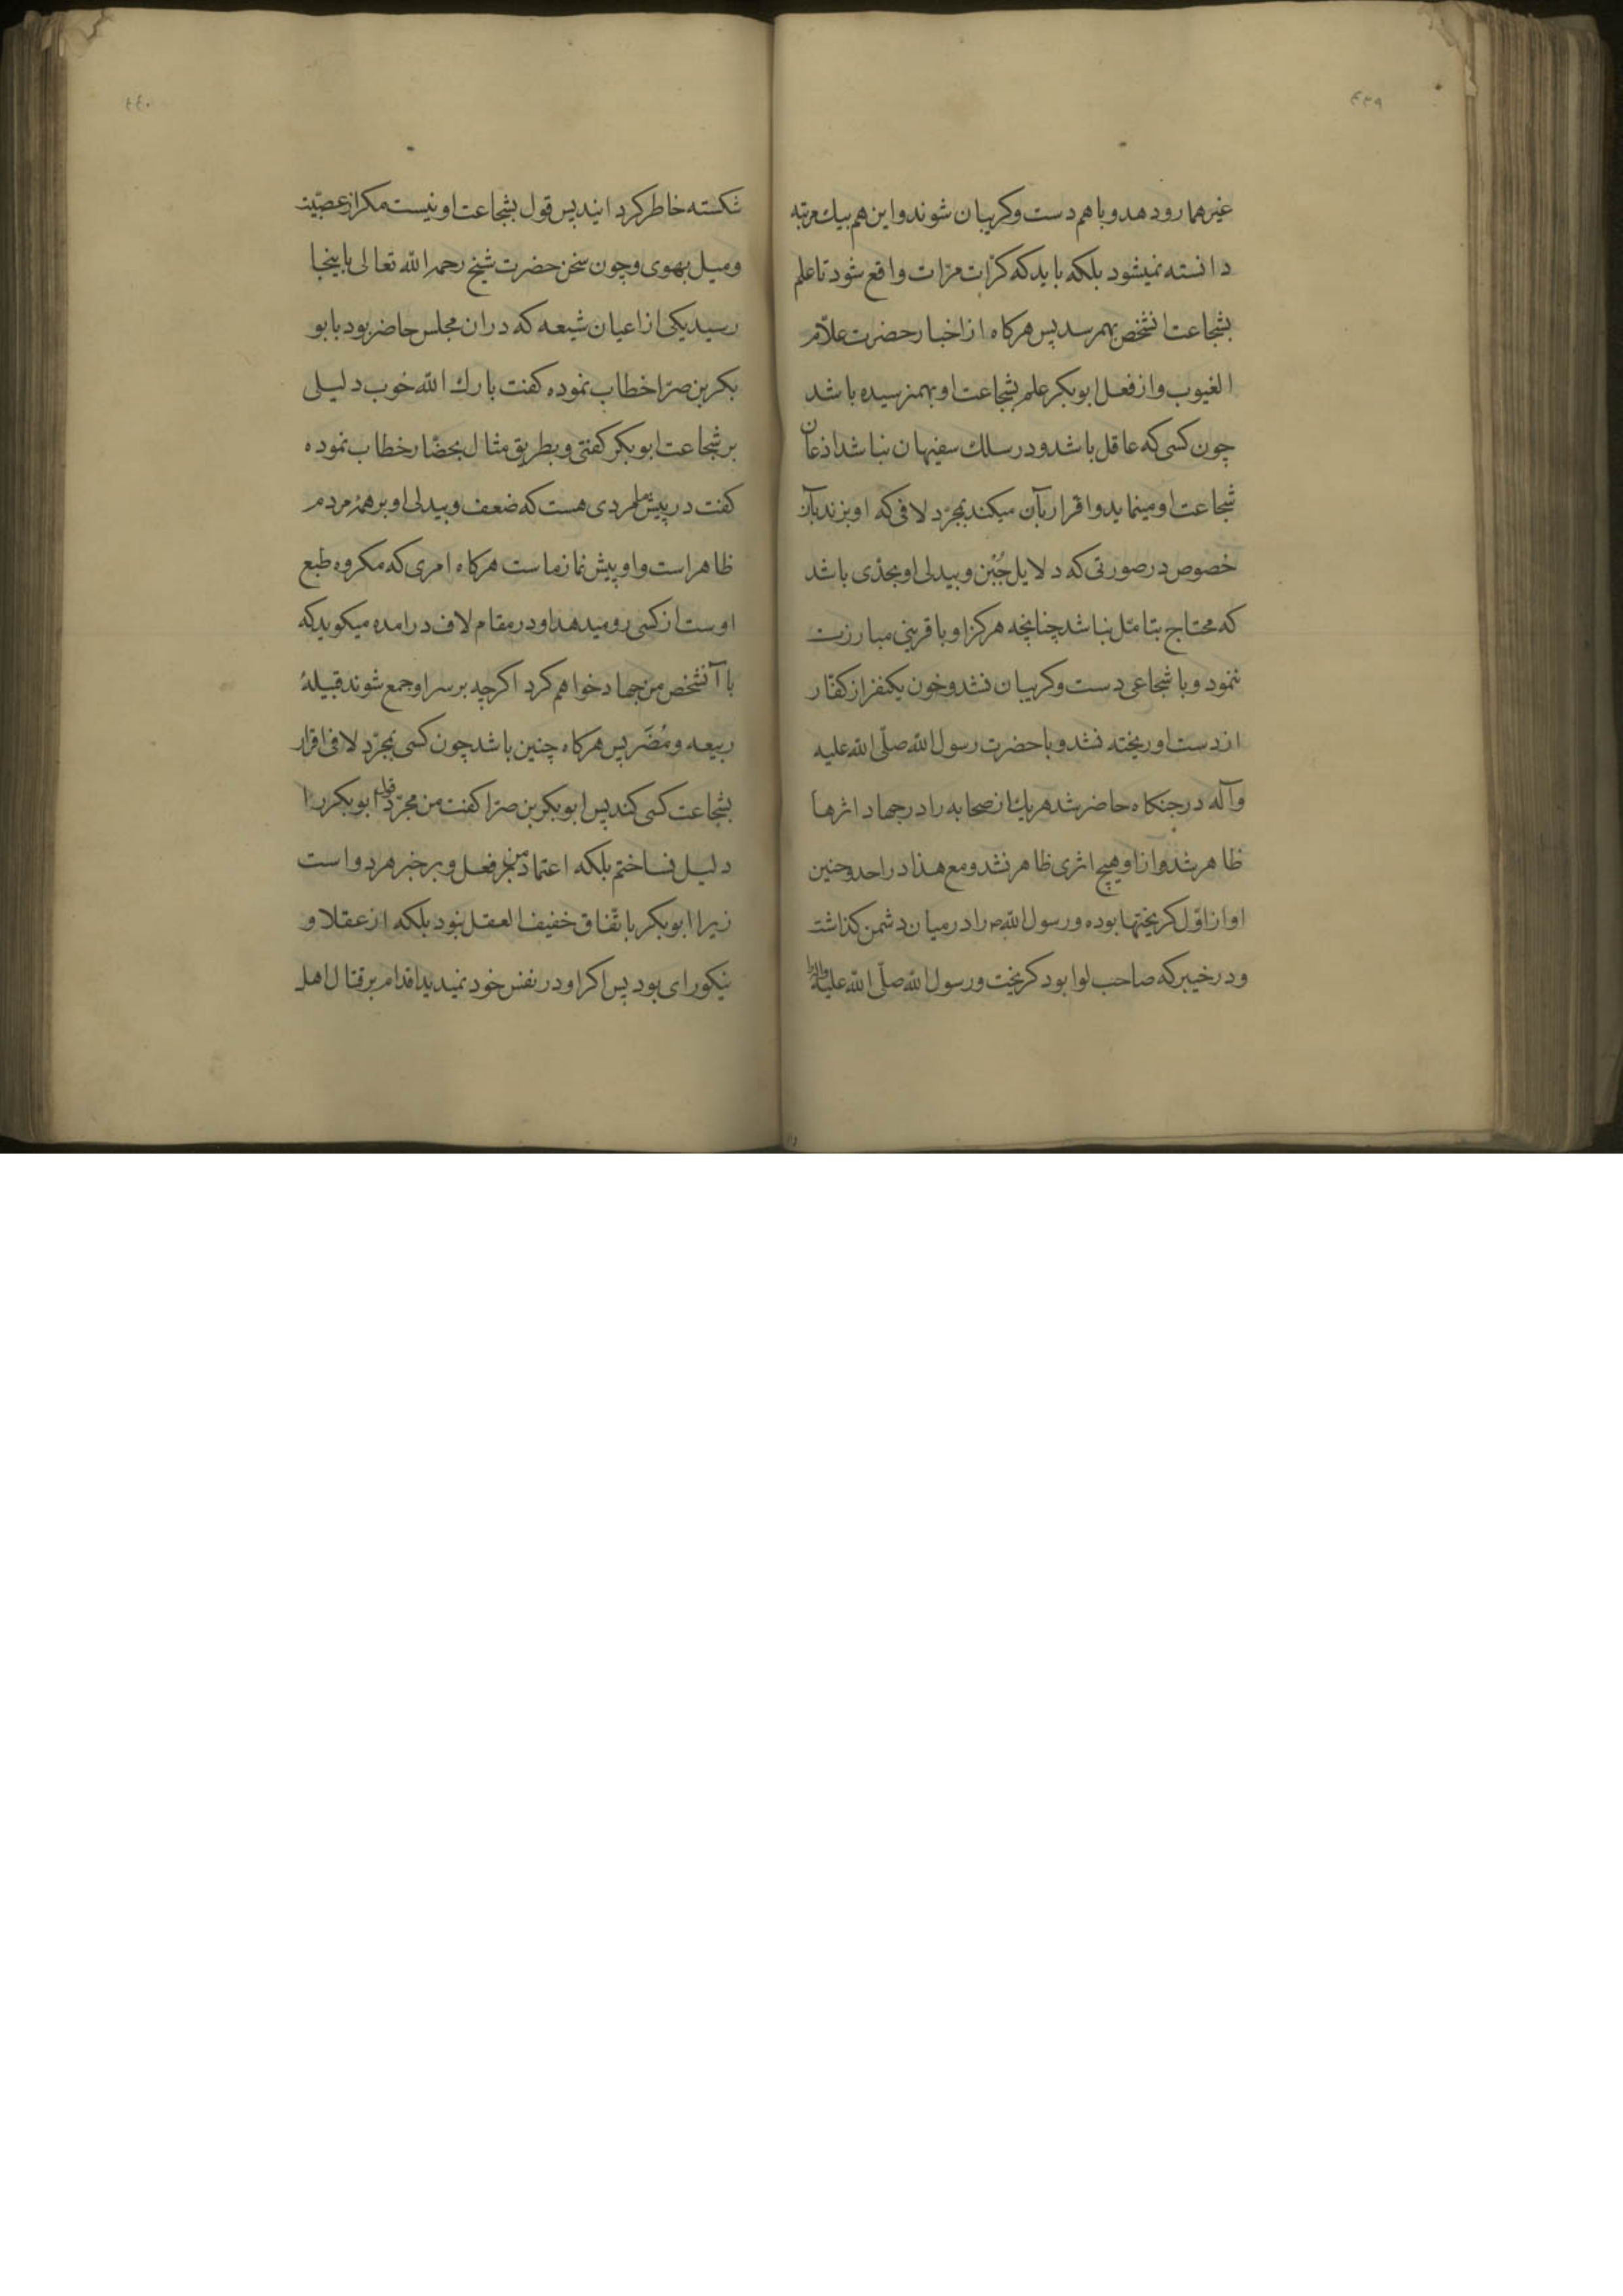 ٤٣٩
غیرهما رو دهد و با هم دست و کریبان شوند و این هم بیك مرتبه
دانسته نمیشود بلکه باید که کرّات مرّات واقع شود تا علم
بشجاعت انشخص بهمرسد پس هرکاه از اخبار حضرت علّام
الغیوب و از فعل ابوبکر علم بشجاعت او بهمنرسیده باشد
چون کسی که عاقل باشد و در سلك سفیهان نباشد اذعان
شجاعت او مینماید و اقرار بآن میکند بمجرّد لافی که او بزند بآن
خصوص در صورتی که دلایل جُبن و بیدلی او بحدّی باشد
که محتاج بتامّل نباشد چنانچه هرکز او با قرینی مبارزت
ننمود و با شجاعی دست و کریبان نشد و خون یکنفر از کفّار
از دست او ریخته نشد و با حضرت رسول الله صلّی الله علیه
وآله در جنکاه حاضر شد هر یك از صحابه را در جهاد اثرها
ظاهر شد و از او هیچ اثری ظاهر نشد و مع هذا در احد و حنین
او از اوّل کریختها بوده و رسول الله ص را در میان دشمن کذاشت
و در خیبر که صاحب لوا بود کریخت و رسول الله صلّی الله علیه وآله را
٤٤٠
شکسته خاطر کردانید پس قول بشجاعت او نیست مکر از عصبیّت
و میل بهوی و چون سخن حضرت شیخ رحمه الله تعالی باینجا
رسید یکی از اعیان شیعه که دران مجلس حاضر بود بابو
بکر بن صرّا خطاب نموده کفت بارك الله خوب دلیلی
بر شجاعت ابوبکر کفتی و بطریق مثال بحضّار خطاب نموده
کفت در پیش ما مردی هست که ضعف و بیدلی او بر همهٔ مردم
ظاهر است و او پیش نماز ماست هرکاه امری که مکروه طبع
اوست از کسی رو میدهد او در مقام لاف درامده میکوید که
با آنشخص من جهاد خواهم کرد اکرچه بر سر او جمع شوند قبیلهٔ
ربیعه و مُضَر پس هرکاه چنین باشد چون کسی بمجرّد لافی اقرار
بشجاعت کسی کند پس ابوبکر بن صرّا کفت من مجرّد قول ابوبکر را
دلیل نساختم بلکه اعتماد من بر فعل و بر خبر هر دو است
زیرا ابوبکر باتّفاق خفیف العقل نبود بلکه از عقلا و
نیکو رای بود پس اکر او در نفس خود نمیدید اقدام بر قتال اهل